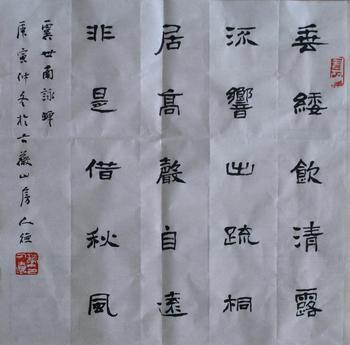 垂緌飲清露
流響出疏桐
居高聲自遠
非是借秋風
虞世南詠蟬
庚寅仲冬於古山房人